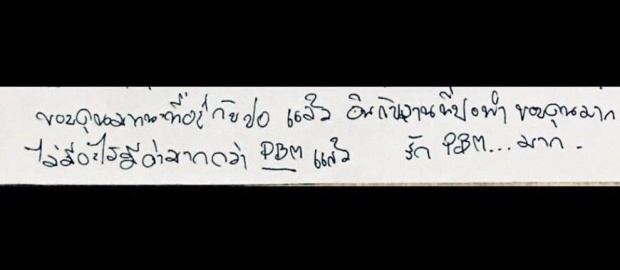 ขอบคุณมากนะที่อยู่กับปอ แล้ว อินกับงานที่ปอทำ ขอบคุณมาก
ไม่มีอะไรมีค่ามากกว่า PBM แล้ว รัก PBM...มาก.